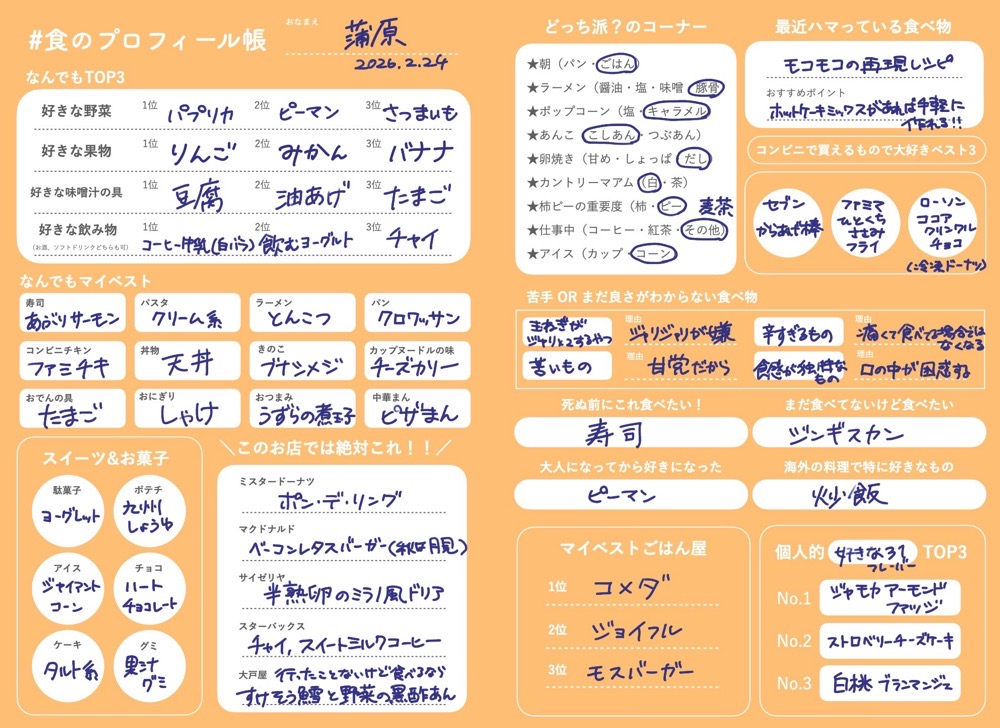 #食のプロフィール帳
おなまえ
蒲原
2026.2.24
なんでもTOP3
好きな野菜 1位 パプリカ 2位 ピーマン 3位 さつまいも
好きな果物 1位 りんご 2位 みかん 3位 バナナ
好きな味噌汁の具 1位 豆腐 2位 油あげ 3位 たまご
好きな飲み物 1位 コーヒー牛乳(白バラ) 2位 飲むヨーグルト 3位 チャイ
(お酒、ソフトドリンクどちらも可)
なんでもマイベスト
寿司 あぶりサーモン
パスタ クリーム系
ラーメン とんこつ
パン クロワッサン
コンビニチキン ファミチキ
丼物 天丼
きのこ ブナシメジ
カップヌードルの味 チーズカリー
おでんの具 たまご
おにぎり しゃけ
おつまみ うずらの煮玉子
中華まん ピザまん
スイーツ&お菓子
駄菓子 ヨーグレット
ポテチ 九州しょうゆ
アイス ジャイアントコーン
チョコ ハートチョコレート
ケーキ タルト系
グミ 果汁グミ
＼このお店では絶対これ！！／
ミスタードーナツ
ポン・デ・リング
マクドナルド
ベーコンレタスバーガー(秋は月見)
サイゼリヤ
半熟卵のミラノ風ドリア
スターバックス
チャイ, スイートミルクコーヒー
大戸屋 行ったことないけど食べるなら
すけそう鱈と野菜の黒酢あん
どっち派？のコーナー
★朝（パン・ごはん）
★ラーメン（醤油・塩・味噌・豚骨）
★ポップコーン（塩・キャラメル）
★あんこ（こしあん・つぶあん）
★卵焼き（甘め・しょっぱ・だし）
★カントリーマアム（白・茶）
★柿ピーの重要度（柿・ピー）
麦茶
★仕事中（コーヒー・紅茶・その他）
★アイス（カップ・コーン）
最近ハマっている食べ物
モコモコの再現レシピ
おすすめポイント
ホットケーキミックスがあれば手軽に
作れる!!
コンビニで買えるもので大好きベスト3
セブン
からあげ棒
ファミマ
ひとくち
ささみ
フライ
ローソン
ココア
クリンクル
チョコ
(冷凍ドーナツ)
苦手 OR まだ良さがわからない食べ物
玉ねぎが
ジャリッとするやつ
理由
ジャリジャリが嫌
辛すぎるもの
理由
痛くて食べてる場合では
なくなる
苦いもの
理由
甘党だから
食感が独特な
もの
理由
口の中が困惑する
死ぬ前にこれ食べたい！
寿司
まだ食べてないけど食べたい
ジンギスカン
大人になってから好きになった
ピーマン
海外の料理で特に好きなもの
炒飯
マイベストごはん屋
1位 コメダ
2位 ジョイフル
3位 モスバーガー
個人的 好きな31フレーバー TOP3
No.1 ジャモカ アーモンド
ファッジ
No.2 ストロベリーチーズケーキ
No.3 白桃 ブランマンジェ